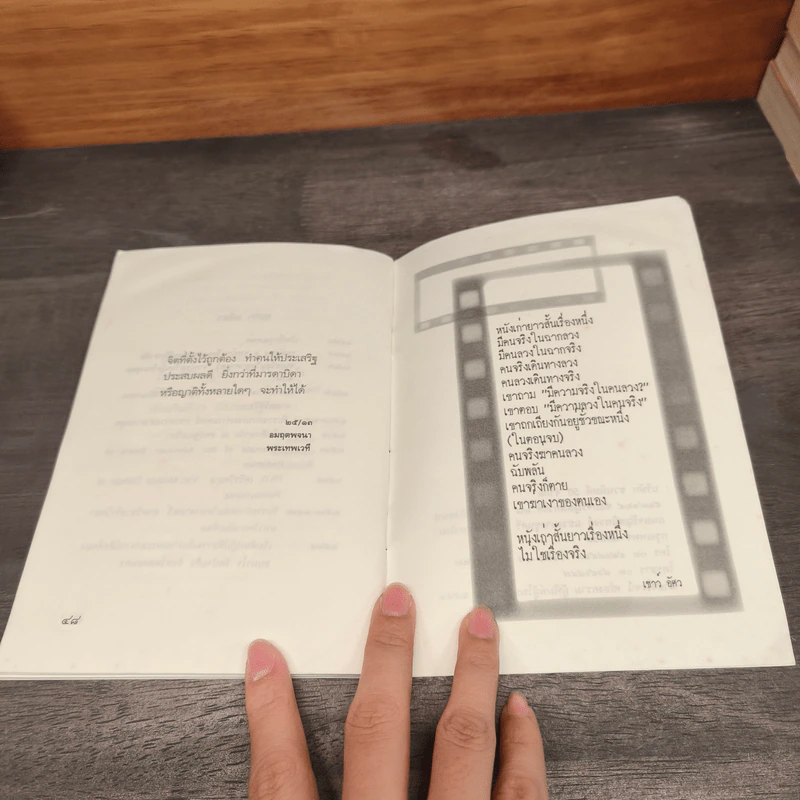 จิตที่ตั้งไว้ถูกต้อง ทำคนให้ประเสริฐ
ประสบผลดี ยิ่งกว่าที่มารดาบิดา
หรือญาติทั้งหลายใดๆ จะทำให้ได้
๒๕/๑๓
อมฤตพจนา
พระเทพเวที
๔๘
หนังเก่ายาวสั้นเรื่องหนึ่ง
มีคนจริงในฉากลวง
มีคนลวงในฉากจริง
คนจริงเดินทางลวง
คนลวงเดินทางจริง
เขาถาม "มีความจริงในคนลวง?"
เขาตอบ "มีความลวงในคนจริง"
เขาถกเถียงกันอยู่ชั่วขณะหนึ่ง
(ในตอนจบ)
คนจริงฆ่าคนลวง
ฉับพลัน
คนจริงก็ตาย
เขาฆ่าเงาของตนเอง
หนังเก่าสั้นยาวเรื่องหนึ่ง
ไม่ใช่เรื่องจริง
เชาว์ อัศว